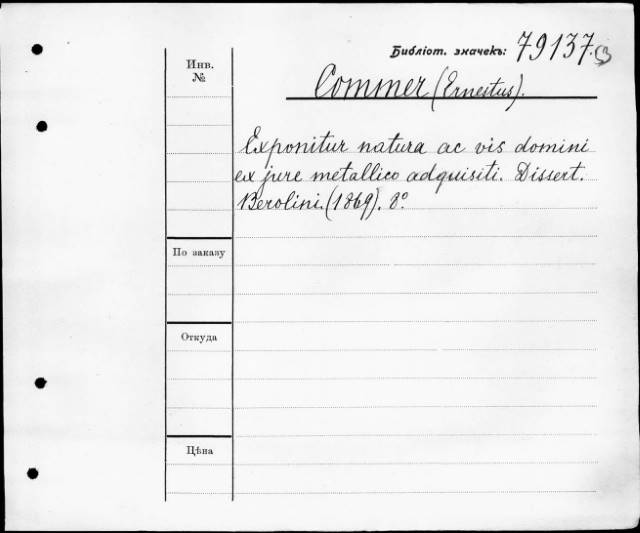 Библіот. значекъ: 79137.
Инв.
№
Commer (Ernestus).
Exponitur natura ac vis domini
ex jure metallico adquisiti. Dissert.
Berolini. (1869). 8°
По заказу
Откуда
Цѣна